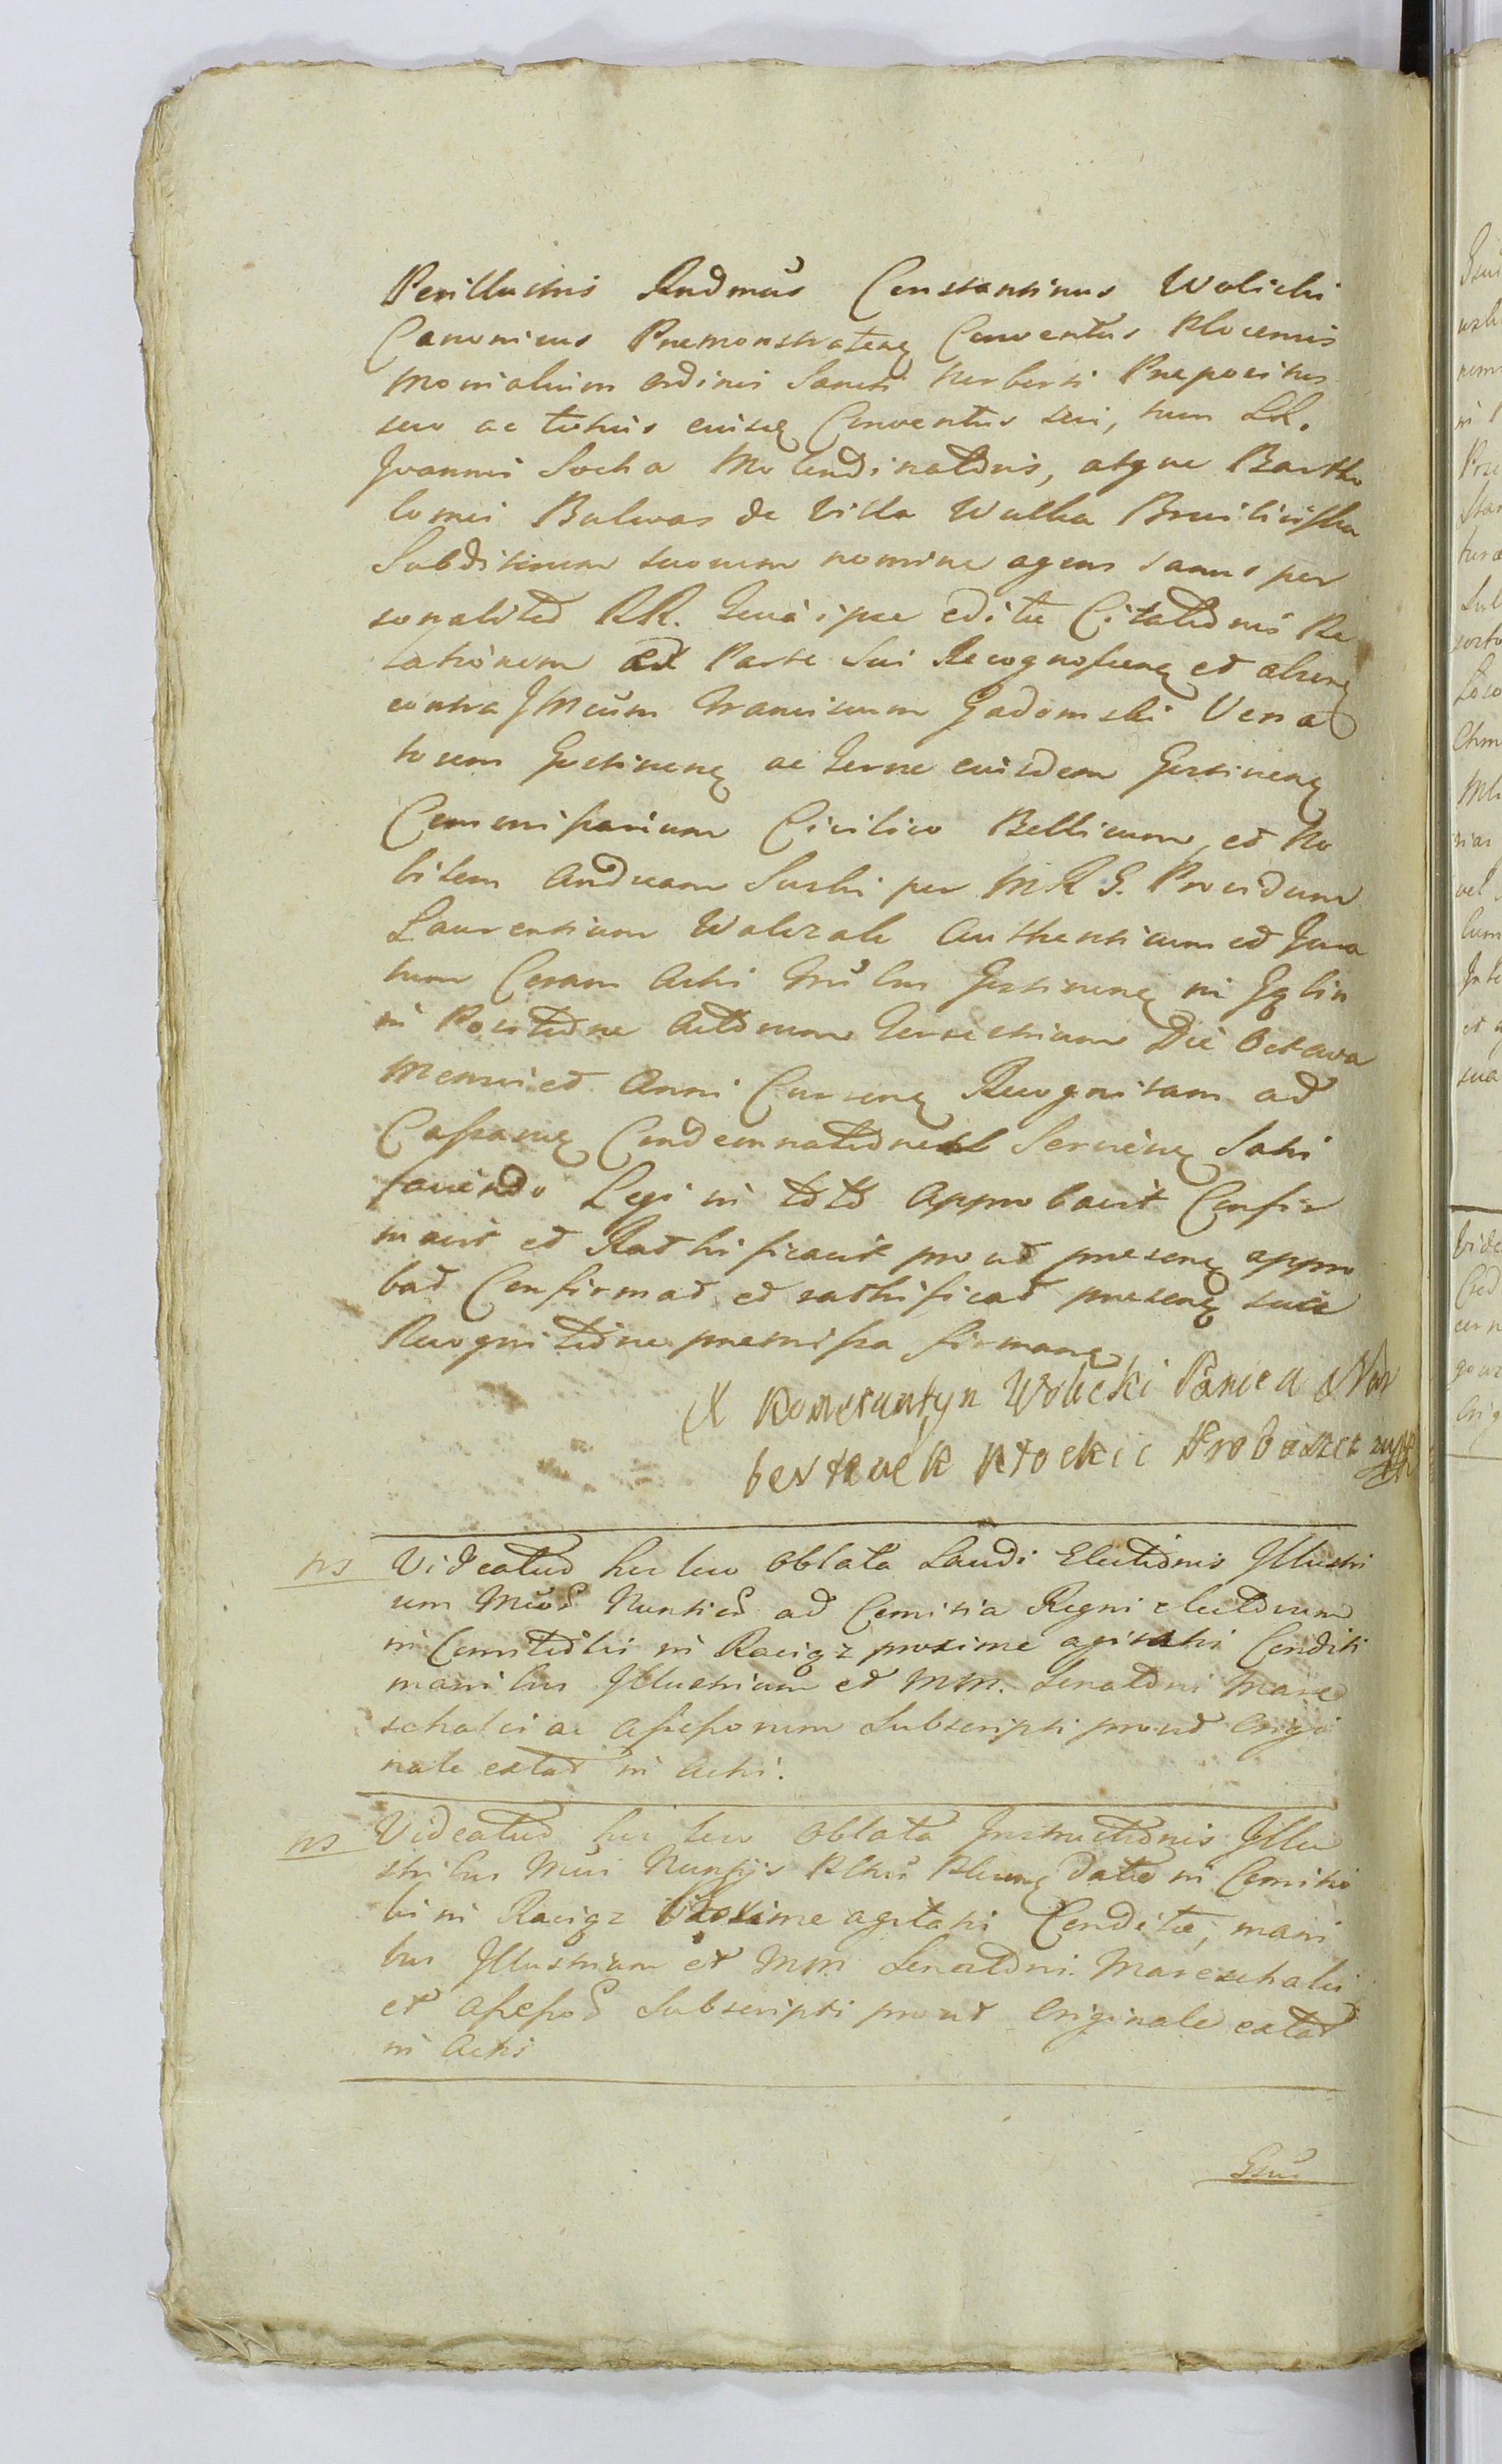 Perillustris Rndmus Constantinus Wolicki
Canonicus Premonstraten Conventus Plocensis
Monialium Ordinis Sancti Norberti Prepositus
suo ac totius eiusq Conventus sui, tum LL.
Joannis Socha Molendinatoris, atque Bartho
lomei Bulwas de Villa Wulka
Subditorum suorum nomine agens sanus per
sonaliter RR. ipse edite Citationis Re
lationem ex Parte sui Recognoscen et
contra JMcum Franciscum Gadomski Vena
torem Gostinen ac Terre eiusdem Gostinen
Commissarium Civilico Bellicum, et No
bilem Andream Suski per M R G. Providum
Laurentium Walczak Authenticum et Jura
tum Coram Actis Gostinen in Gąbin
in Positione Actorum Terrestrium Die Octava
Mensis et Anni Curren Recognitam ad
Cassanq Condemnationem Satis
faciendo Legi in toto approbavit Confir
mavit et Rathificavit prout presenq appro
bat Confirmat et rathificat presenq sua
Recognitione premissa firmanq
X Konstantyn Wolicki Panien Nor
bertanek Płockic Proboszcz mpp
NS Videatur hic loco Oblata Laudi Electionis Illustri
um Mcor Nuntior ad Comitia Regni electorum
in Comitiolis in Raciąz proxime agitatis Conditi
manibus Illustrium et MM. Senatoris Mare
schalci ac Assessorum Subscripti prout Origi
nale extat in Actis.
NS Videatur hic loco Oblata Instructionis Illu
stribus Mcis Nuntijs Pltus Plocenq date in Comitio
lis in Raciąz proxime agitatis Condite, mani
bus Illustrium et MM Senatoris Mareschalci
et Assessor Subscripti prout Originale extat
in Actis